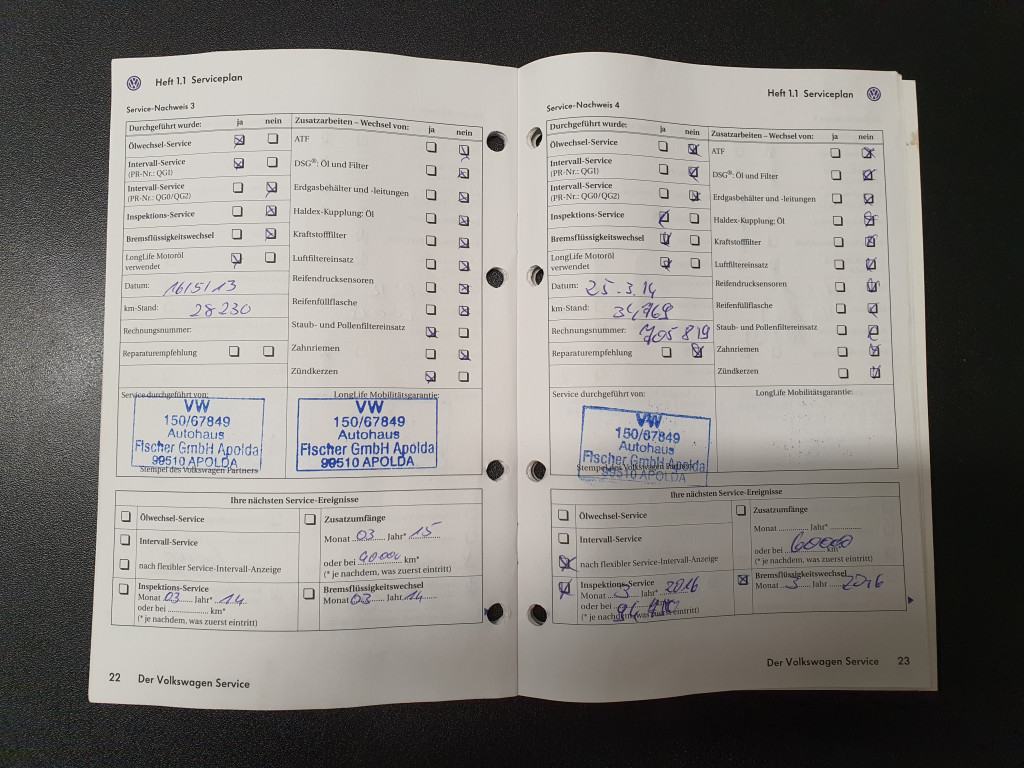 Heft 1.1 Serviceplan
Service-Nachweis 3
Durchgeführt wurde: ja nein
Ölwechsel-Service
Intervall-Service
(PR-Nr.: QG1)
Intervall-Service
(PR-Nr.: QG0/QG2)
Inspektions-Service
Bremsflüssigkeitswechsel
LongLife Motoröl
verwendet
Datum: 16/5/13
km-Stand: 28230
Rechnungsnummer:
Reparaturempfehlung
Zusatzarbeiten – Wechsel von: ja nein
ATF
DSG®: Öl und Filter
Erdgasbehälter und -leitungen
Haldex-Kupplung: Öl
Kraftstofffilter
Luftfiltereinsatz
Reifendrucksensoren
Reifenfüllflasche
Staub- und Pollenfiltereinsatz
Zahnriemen
Zündkerzen
Service durchgeführt von:
VW
150/67849
Autohaus
Fischer GmbH Apolda
99510 APOLDA
Stempel des Volkswagen Partners
LongLife Mobilitätsgarantie:
VW
150/67849
Autohaus
Fischer GmbH Apolda
99510 APOLDA
Ihre nächsten Service-Ereignisse
Ölwechsel-Service
Intervall-Service
nach flexibler Service-Intervall-Anzeige
Inspektions-Service
Monat 03 Jahr* 14
oder bei km*
(* je nachdem, was zuerst eintritt)
Zusatzumfänge
Monat 03 Jahr* 15
oder bei 90000 km*
(* je nachdem, was zuerst eintritt)
Bremsflüssigkeitswechsel
Monat 03 Jahr 14
22 Der Volkswagen Service
Heft 1.1 Serviceplan
Service-Nachweis 4
Durchgeführt wurde: ja nein
Ölwechsel-Service
Intervall-Service
(PR-Nr.: QG1)
Intervall-Service
(PR-Nr.: QG0/QG2)
Inspektions-Service
Bremsflüssigkeitswechsel
LongLife Motoröl
verwendet
Datum: 25.3.14
km-Stand: 34969
Rechnungsnummer: 705819
Reparaturempfehlung
Zusatzarbeiten – Wechsel von: ja nein
ATF
DSG®: Öl und Filter
Erdgasbehälter und -leitungen
Haldex-Kupplung: Öl
Kraftstofffilter
Luftfiltereinsatz
Reifendrucksensoren
Reifenfüllflasche
Staub- und Pollenfiltereinsatz
Zahnriemen
Zündkerzen
Service durchgeführt von:
VW
150/67849
Autohaus
Fischer GmbH Apolda
99510 APOLDA
Stempel des Volkswagen Partners
LongLife Mobilitätsgarantie:
Ihre nächsten Service-Ereignisse
Ölwechsel-Service
Intervall-Service
nach flexibler Service-Intervall-Anzeige
Inspektions-Service
Monat 3 Jahr* 2016
oder bei
(* je nachdem, was zuerst eintritt)
Zusatzumfänge
Monat Jahr*
oder bei 60000 km*
(* je nachdem, was zuerst eintritt)
Bremsflüssigkeitswechsel
Monat 3 Jahr 2016
Der Volkswagen Service 23